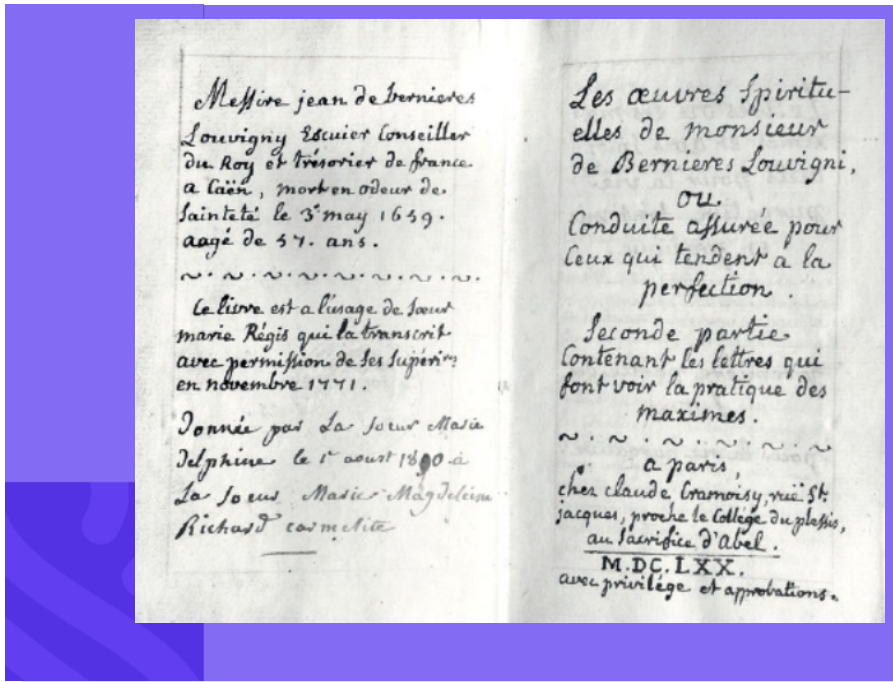 Messire jean de bernieres
Louvigny Escuier Conseiller
du Roy et trésorier de france
a Caën, mort en odeur de
sainteté le 3e may 1659.
aagé de 57. ans.
Ce livre est a l'usage de sœur
marie Régis qui la transcrit
avec permission de ses supérirs
en novembre 1771.
Donnée par La soeur Marie
delphine le 1r aoust 18 0 à
La soeur Marie Magdeleine
Richard carmelite
Les œuvres spiritu-
elles de monsieur
de Bernieres Louvigni,
ou
Conduite assurée pour
ceux qui tendent a la
perfection.
seconde partie
Contenant les lettres qui
font voir la pratique des
maximes.
a paris,
chez claude Cramoisy, ruë St.
jacques, proche le Collége du plessis,
au sacrifice d'abel.
M.DC.LXX.
avec privilége et approbations.